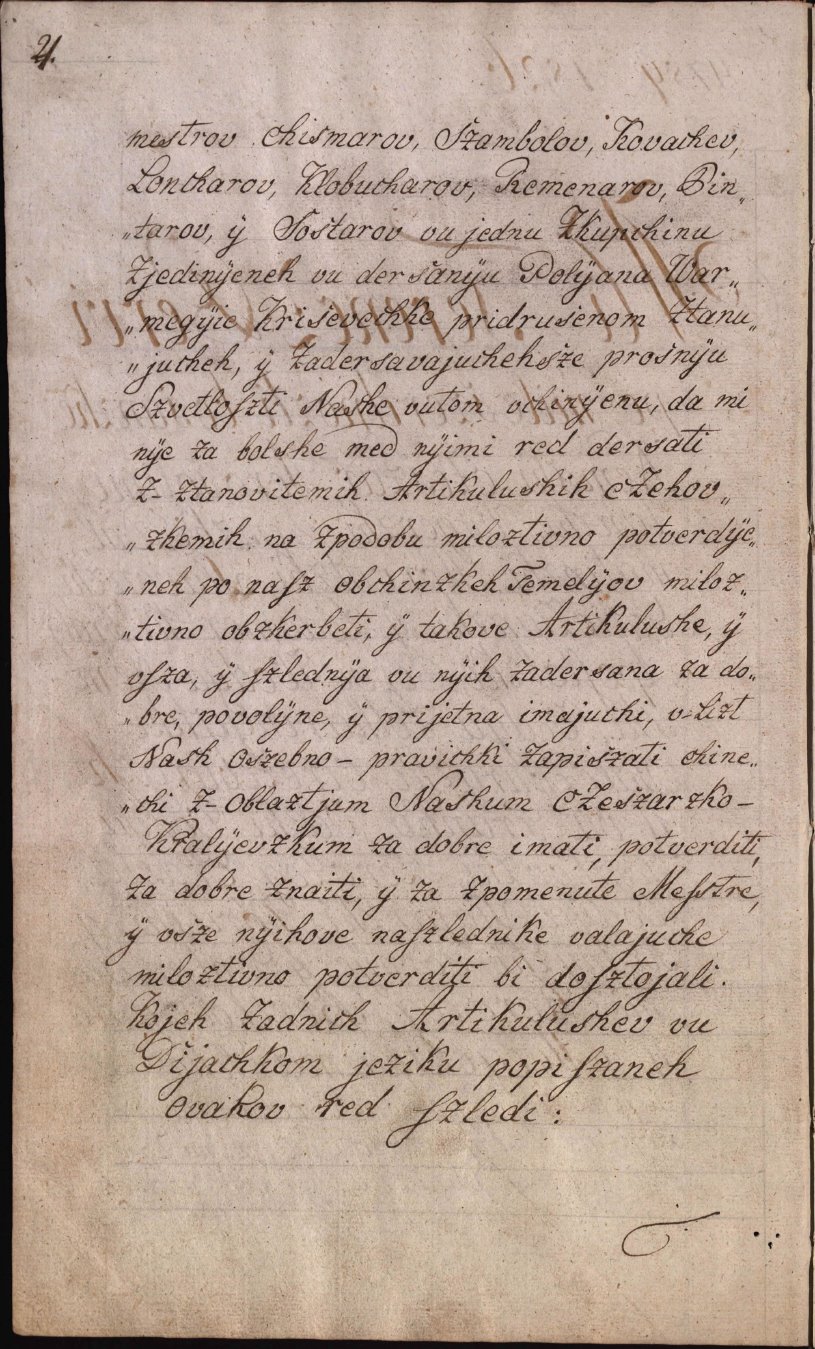 2.
mestrov chismarov, Szambolov, Kovachev,
Loncharov, Klobucharov, Remenarov, Pin„
„tarov, ÿ Sostarov vu jednu Zkupchinu
Zjedinÿeneh vu dersanÿu Polÿana War„
„megÿie Krisevechke pridrusenom Ztanu„
„jucheh, ÿ Zadersavajuchehsze prosnÿu
Szvetloszti Nashe vutom vchinÿenu, da mi
nÿe za bolshe med nÿimi red dersati
Z- Ztanovitemih Artikulushih cZehov„
„zkemih na Zpodobu miloztivno potverdÿe„
„neh po nasz obchinzkeh Temelÿov miloz„
„tivno obzkerbeti, ÿ takove Artikulushe, ÿ
vsza, ÿ szlednÿa vu nÿih Zadersana za do„
„bre, povolÿne, ÿ prijetna imajuchi, v-Lizt
Nash Oszebno - pravichki Zapiszati chine„
„chi Z- Oblaztjum Nashum cZeszarzko-
Kralÿevzkum za dobre imati, potverditi,
Za dobre Znaiti, ÿ za Zpomenute Messtre,
ÿ vsze nÿihove naszlednike valajuche
miloztivno potverditi bi dosztojali.
Kojeh Zadnich Artikulushev vu
Dijachkom jeziku popiszaneh
Ovakov red szledi: